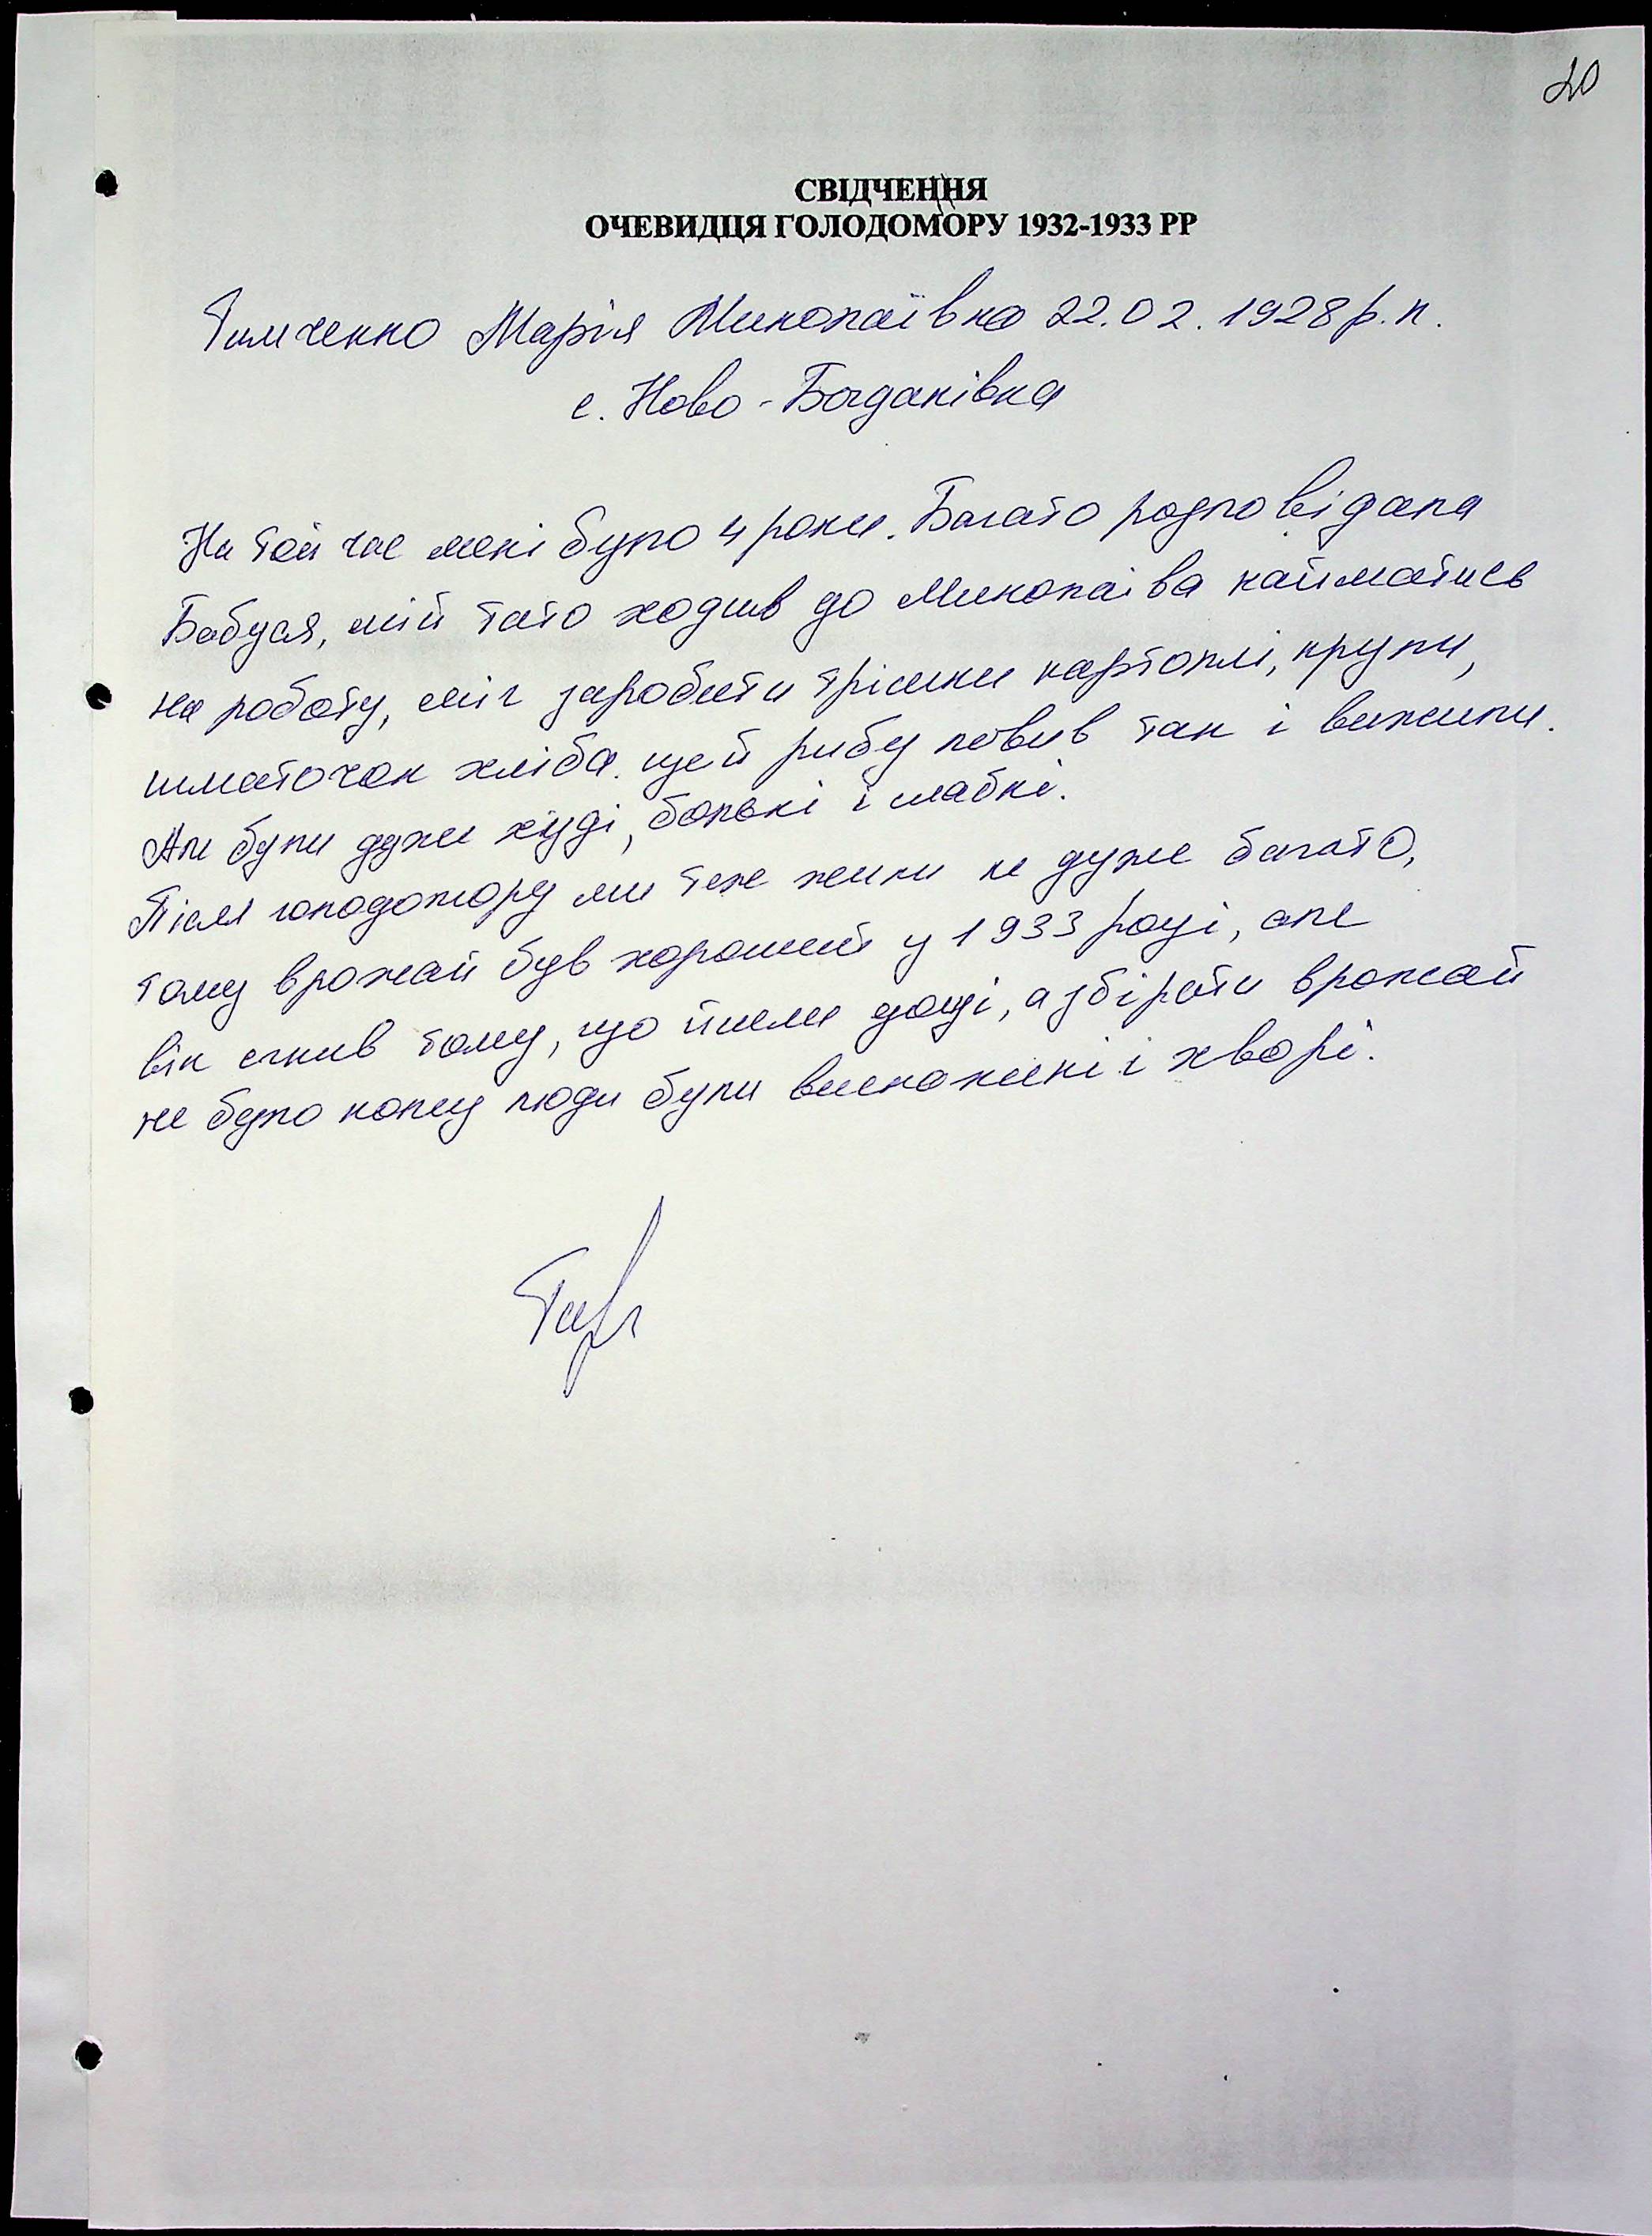 20
СВІДЧЕННЯ
ОЧЕВИДЦЯ ГОЛОДОМОРУ 1932-1933 РР
Тимченко Марія Миколаївна 22.02.1928 р.н.
с. Ново-Богданівка
На той час мені було 4 роки. Багато розповідала
Бабуся, мій тато ходив до Миколаїва найматись
на роботу, міг заробити трішки картоплі, крупи,
шматочок хліба. щей рибу ловив так і вижили.
Але були дуже худі, больні і слабкі.
Після голодомору ми теж жили не дуже багато,
тому врожай був хороший у 1933 році, але
він сгнив тому, що йшли дощі, а збірати врожай
не було кому люди були виснажині і хворі.